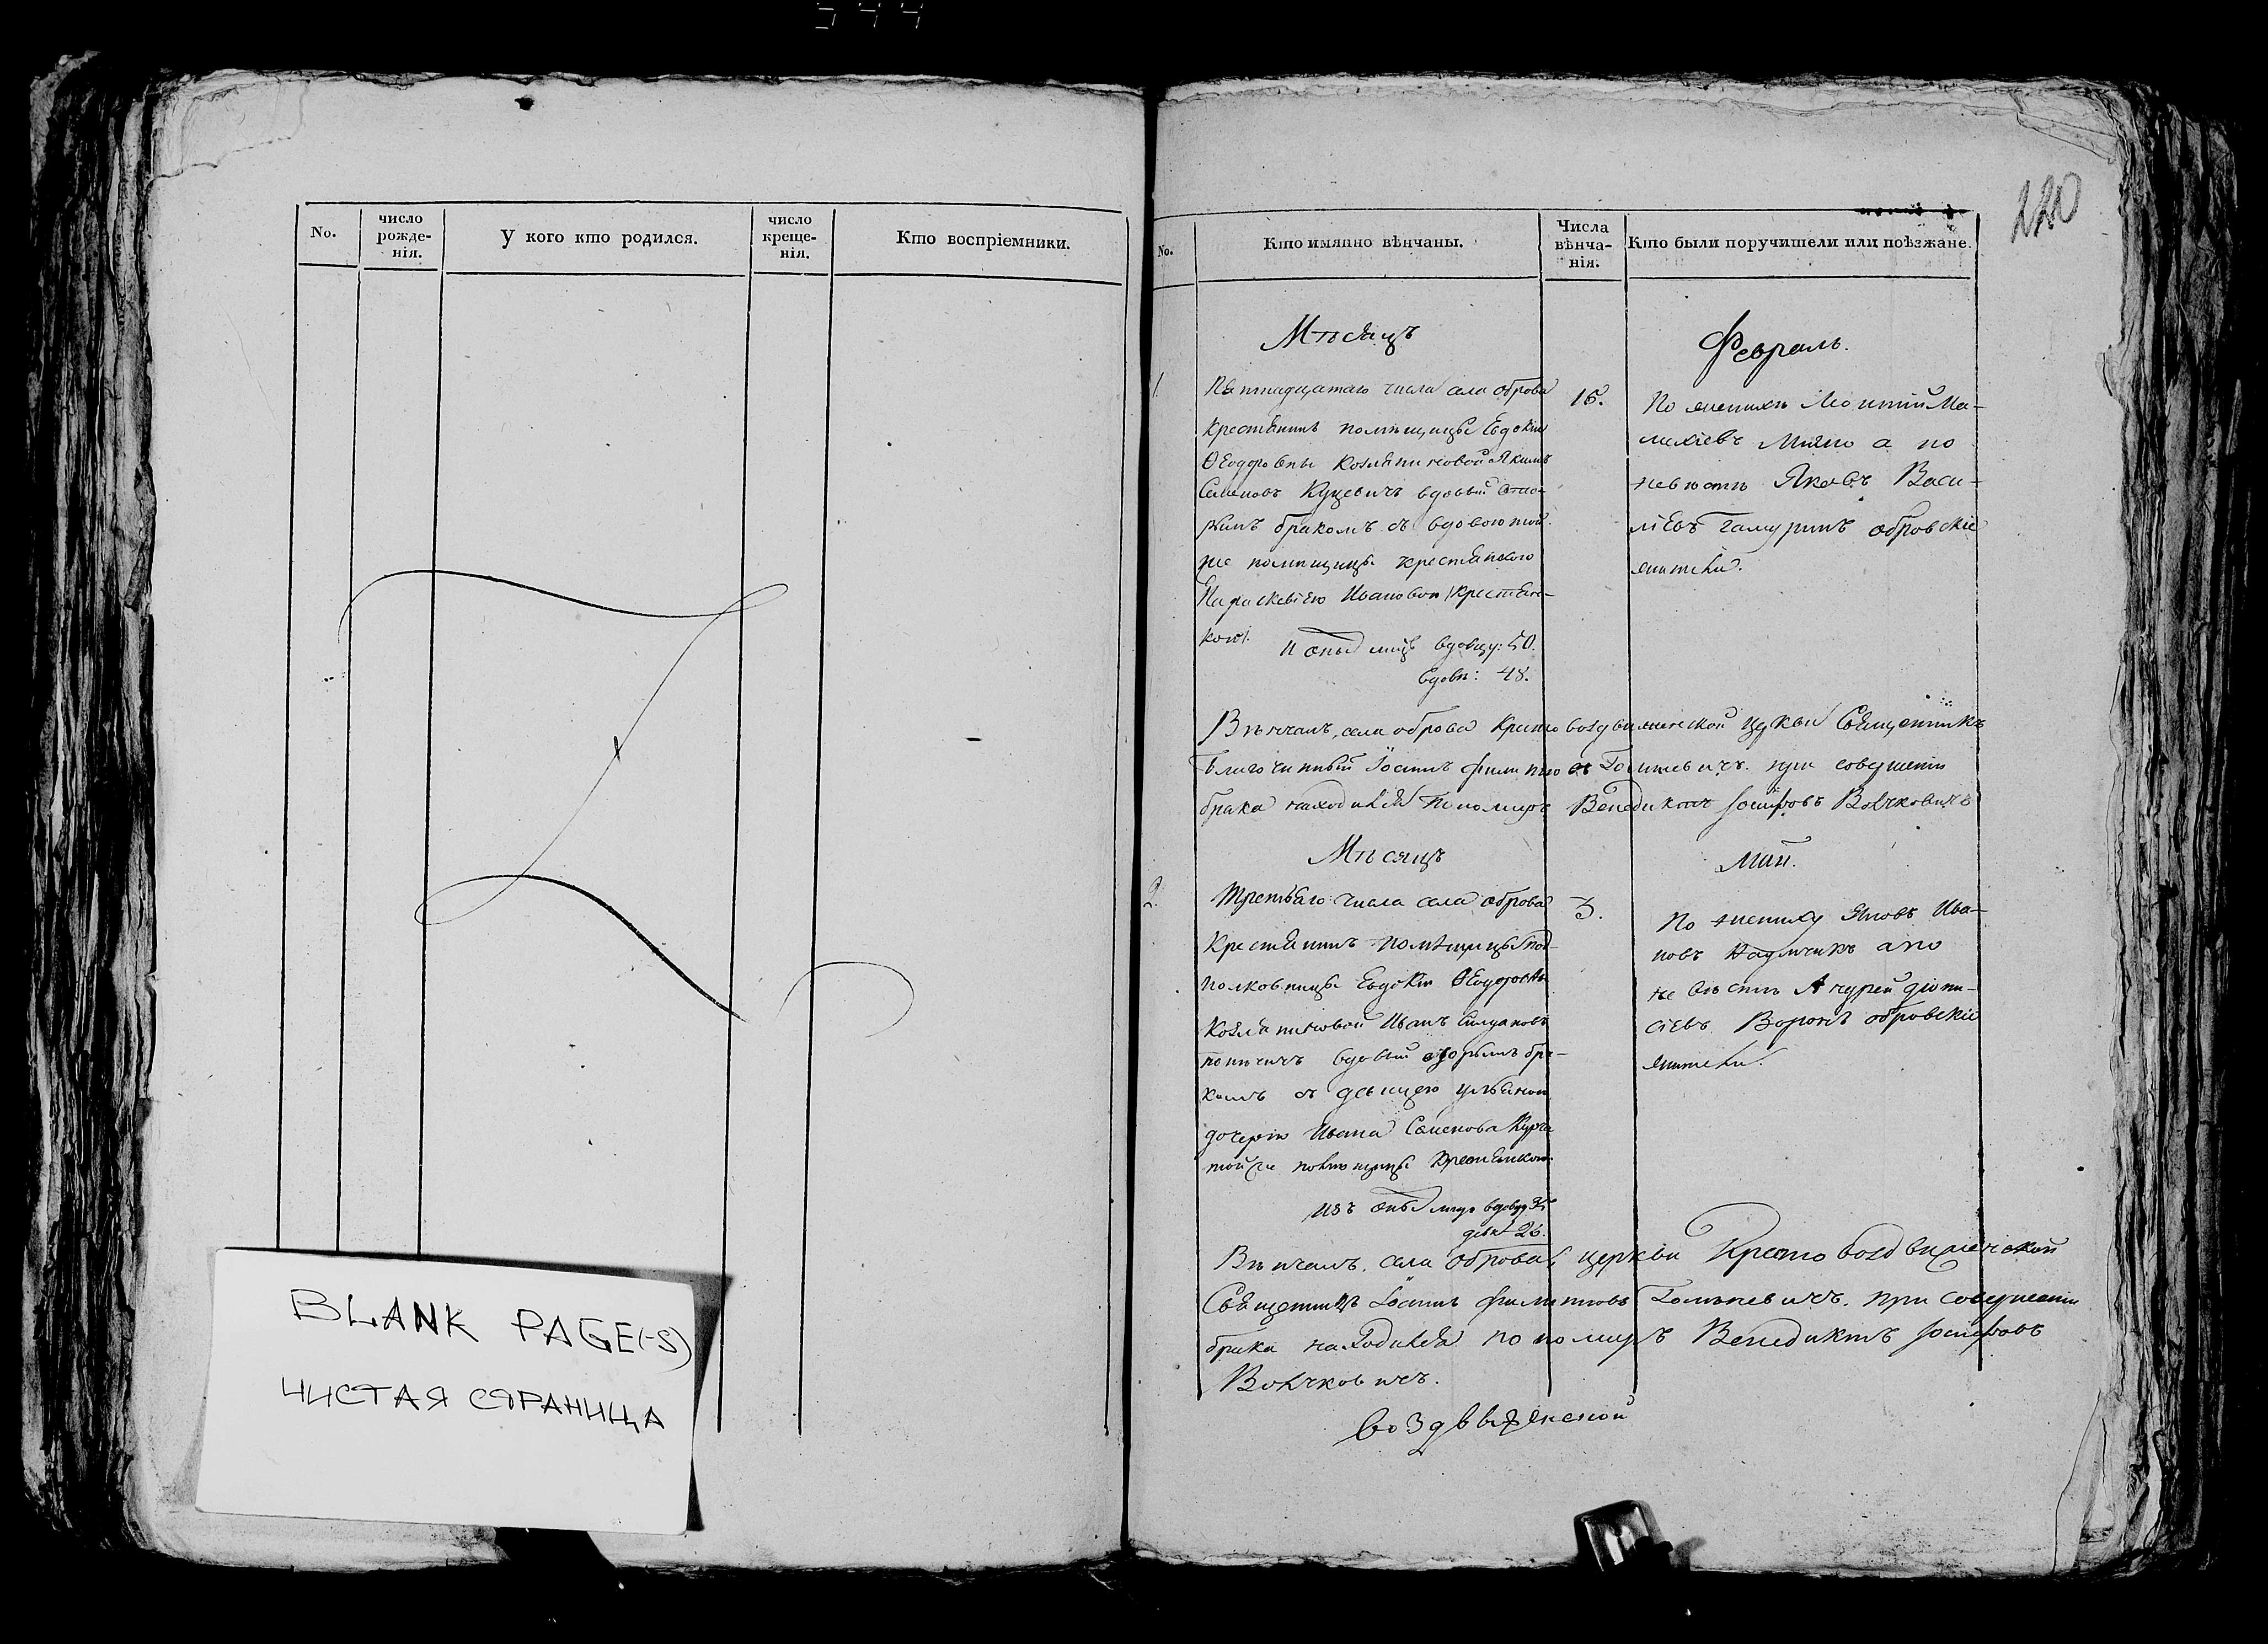 544
No.
число рожде-нія.
У кого кто родился.
число креще-нія.
Кто воспріемники.
BLANK PAGE(-S)
ЧИСТАЯ СТРАНИЦА
220
No.
Кто имянно вѣнчаны.
Числа вѣнча-нія.
Кто были поручители или поѣзжане.
Мѣсяцъ
Февраль.
1.
Пятнадцатаго числа села оброва
крестьянинъ помѣщицы Евдокіи
Ѳеодоровны Козляниновой Якимъ
Семеновъ вдовый вто-
рымъ бракомъ съ вдовою той
же помѣщицы крестьянкою
Параскевіею Ивановою крестьян-
кою.
лѣтъ вдовцу: 50.
вдовѣ: 48.
15.
По женихѣ Леонтій Ма-
а по
невѣстѣ Яковъ Васи-
ліевъ обровскіе
жители.
Вѣнчалъ села оброва Кресто воздвиженской Церкви Священникъ
Благочинный Іоаннъ Филиповъ при совершеніи
брака находился Пономарь Венедиктъ Іосифовъ Волчковичъ
Мѣсяцъ
Май.
2.
Третьяго числа села оброва
Крестьянинъ помѣщицы под-
полковницы Евдокіи Ѳеодоровны
Козляниновой Иванъ
вдовый вторымъ бра-
комъ съ дѣвицею Ульяною
дочерью Ивана Семенова
той же помѣщицы крестьянкою.
изъ оныхъ лѣтъ вдовцу
дѣвѣ 26.
3.
По жениху Яковъ Ива-
новъ а по
невѣстѣ Андрей Діони-
сіевъ Воронъ обровскіе
жители.
Вѣнчалъ села оброва церкви Кресто воздвиженской
Священникъ Іоаннъ Филиповъ при совершеніи
брака находился пономарь Венедиктъ Іосифовъ
Волчковичъ.
воздвиженской